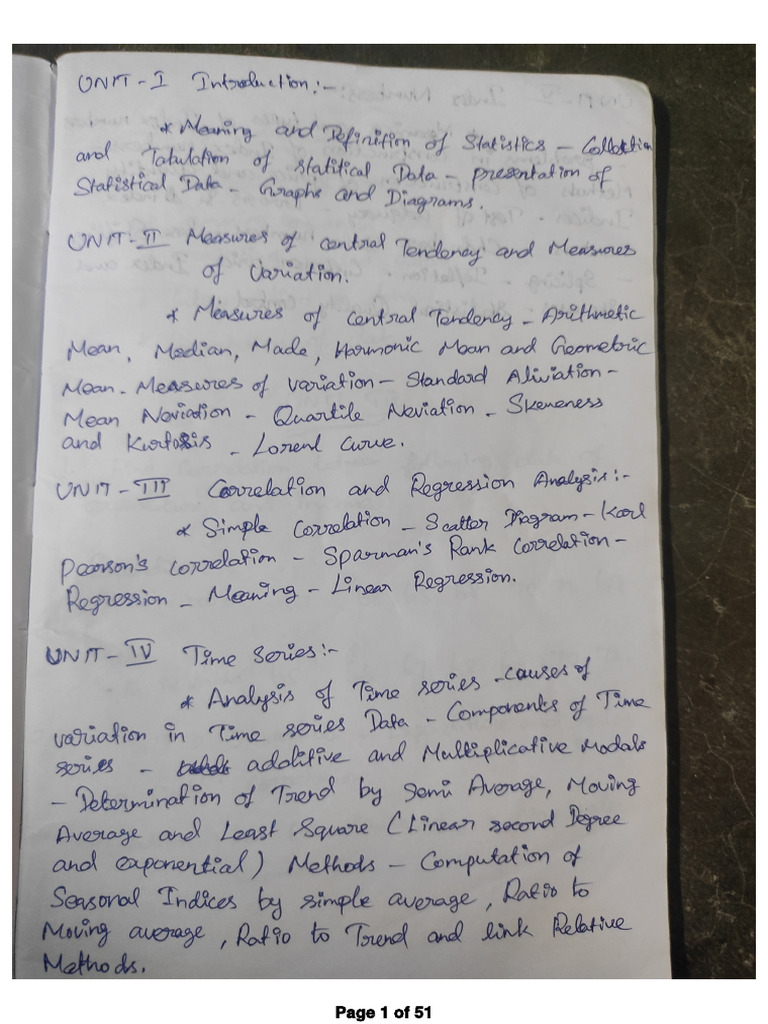 UNIT - I Introduction:-
* Meaning and Definition of Statistics - Collection
and Tabulation of statitical Data - presentation of
Statistical Data - Graphs and Diagrams.
UNIT-II Measures of central Tendency and Measures
of Variation.
* Measures of central Tendency - Arithmetic
Mean, Median, Made, Harmonic Mean and Geometric
Mean. Measures of variation - Standard Aliviation -
Mean Neviation - Quartile Neviation - Skeneness
and Kurtosis - Lorenl Curve.
UNIT - III Correlation and Regression Analysis:-
* Simple Correlation - Scatter Diagram - Karl
Pearson's correlation - Sparman's Rank Correlation -
Regression - Meaning - Linear Regression.
UNIT - IV Time Series:-
* Analysis of Time series - causes of
variation in Time series Data - Components of Time
series - additive and Multiplicative Modals
- Determination of Trend by Semi Average, Moving
Average and Least Square (Linear second Degree
and exponential) Methods - Computation of
Seasonal Indices by simple average, Ratio to
Moving average, Ratio to Trend and link Relative
Methods.
Page 1 of 51